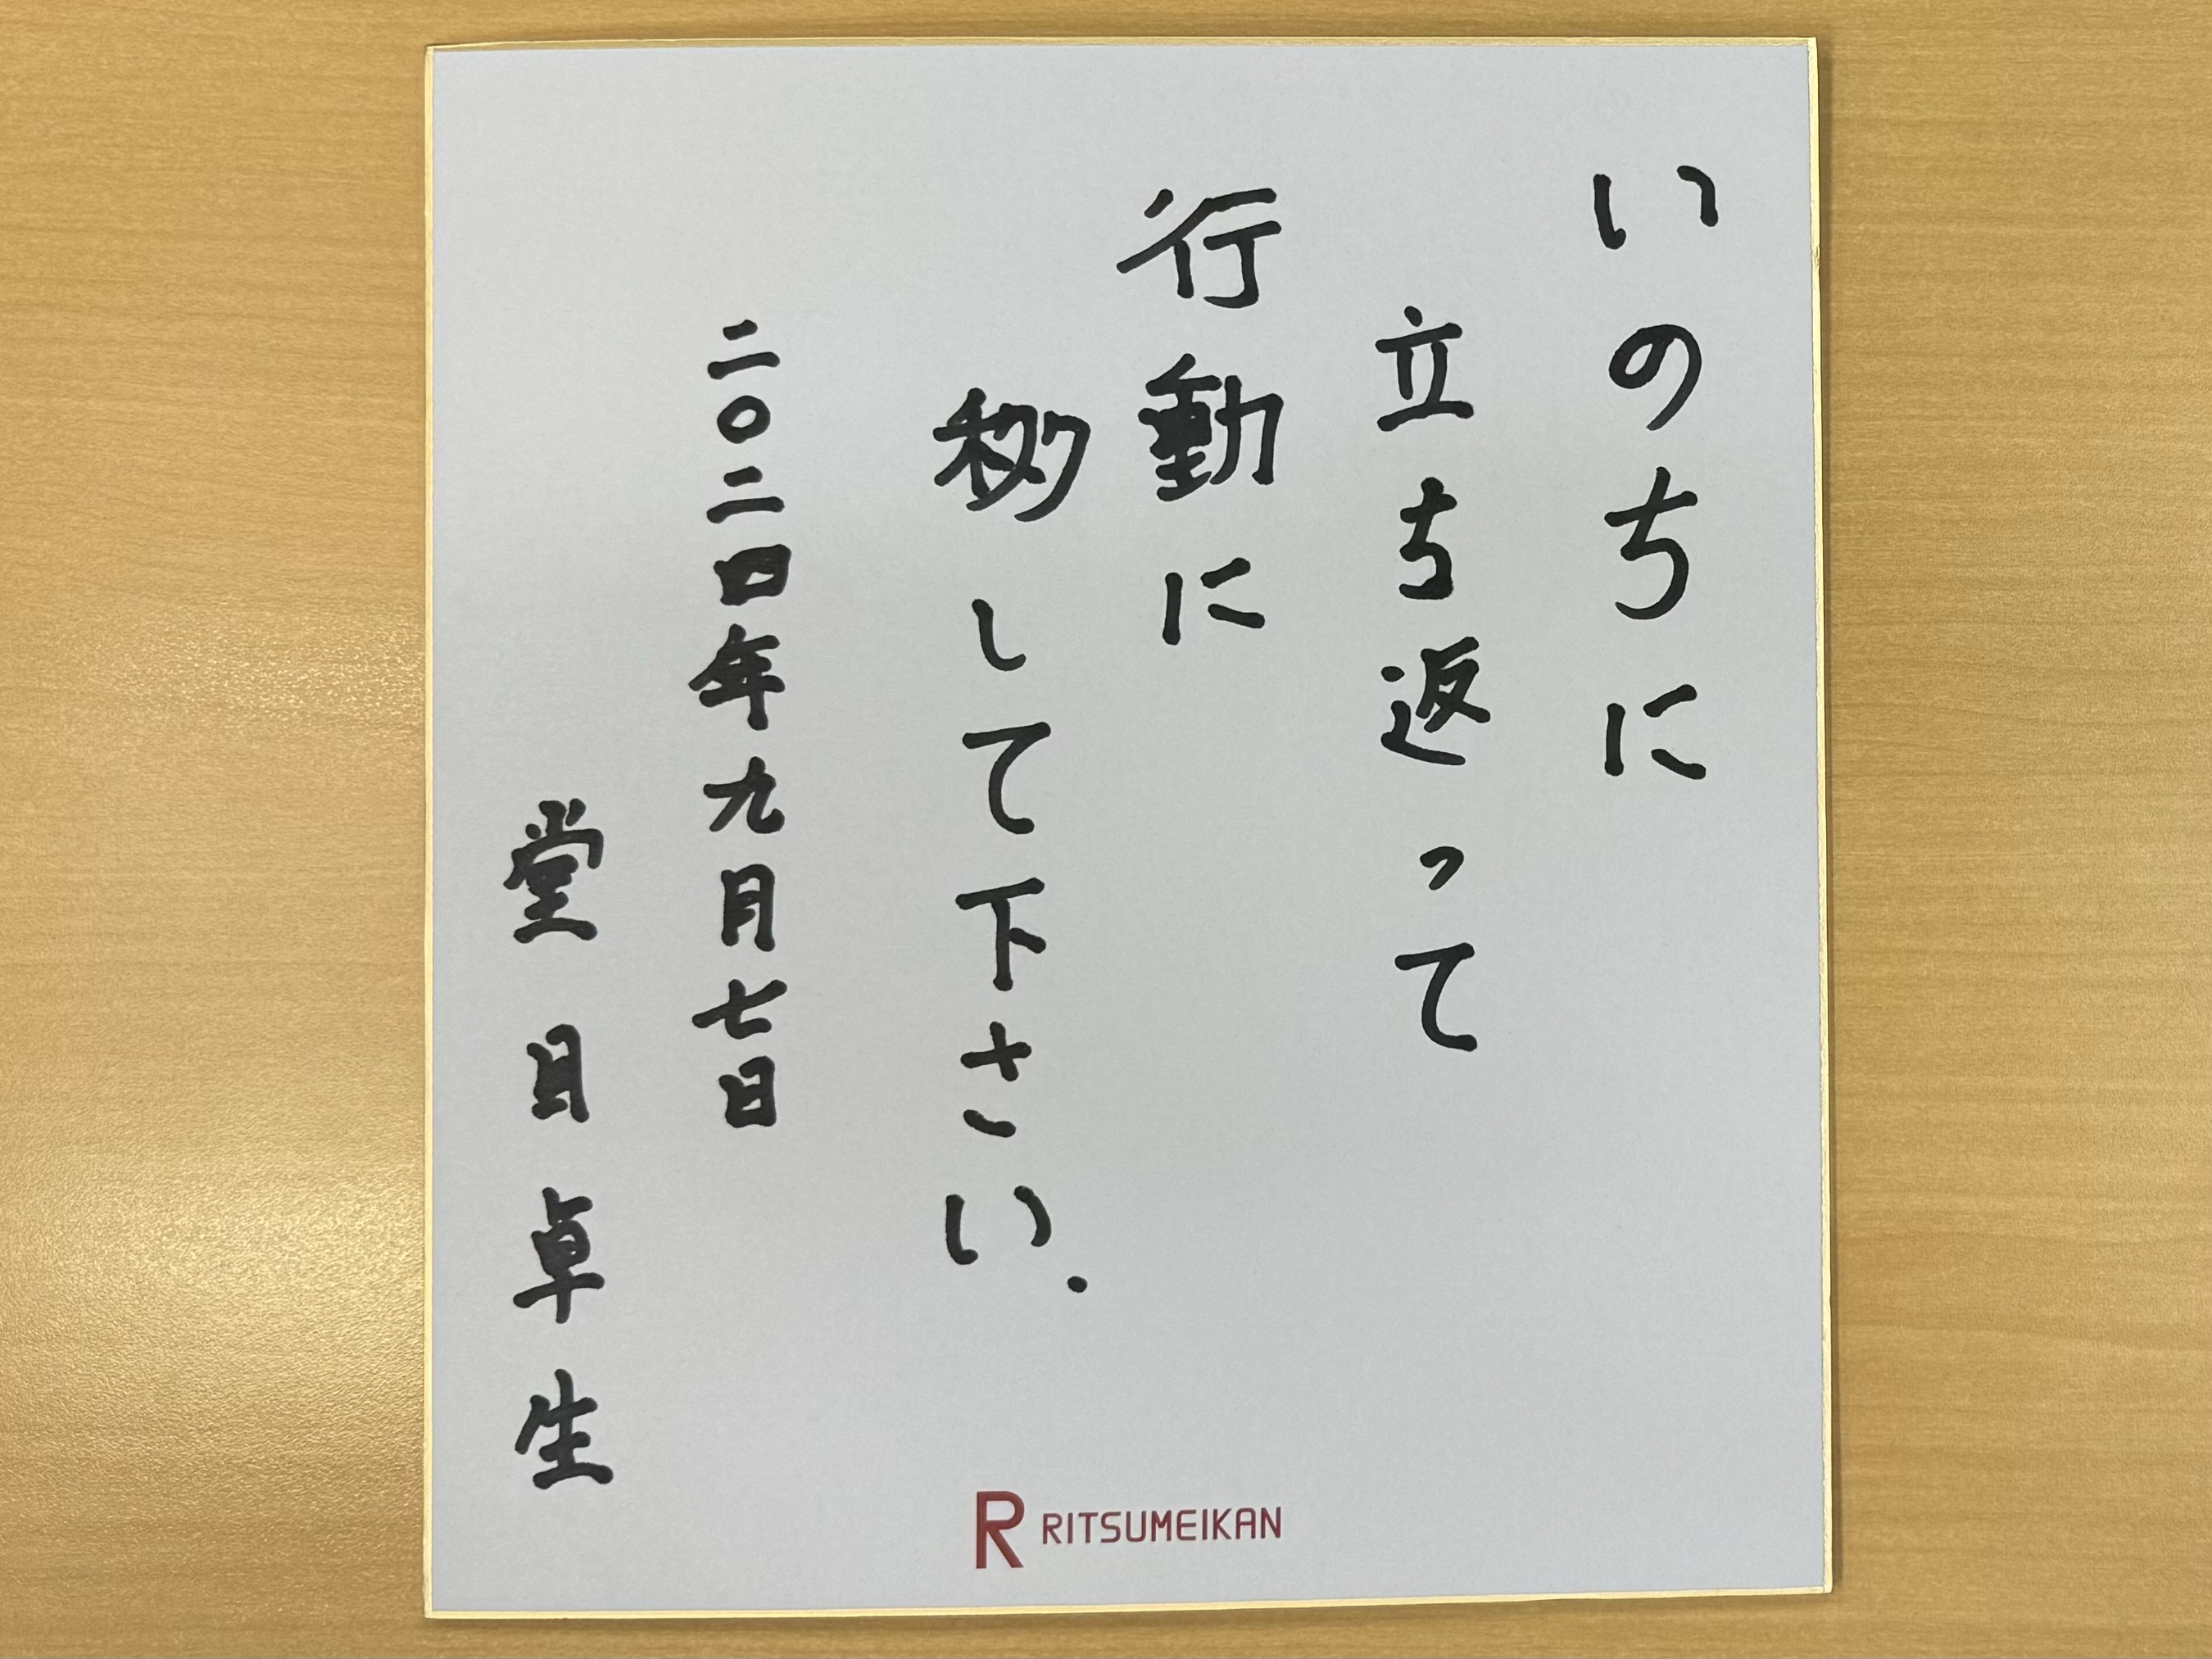 いのちに
立ち返って
行動に
移して下さい.
二〇二四年九月七日
堂目卓生
R RITSUMEIKAN